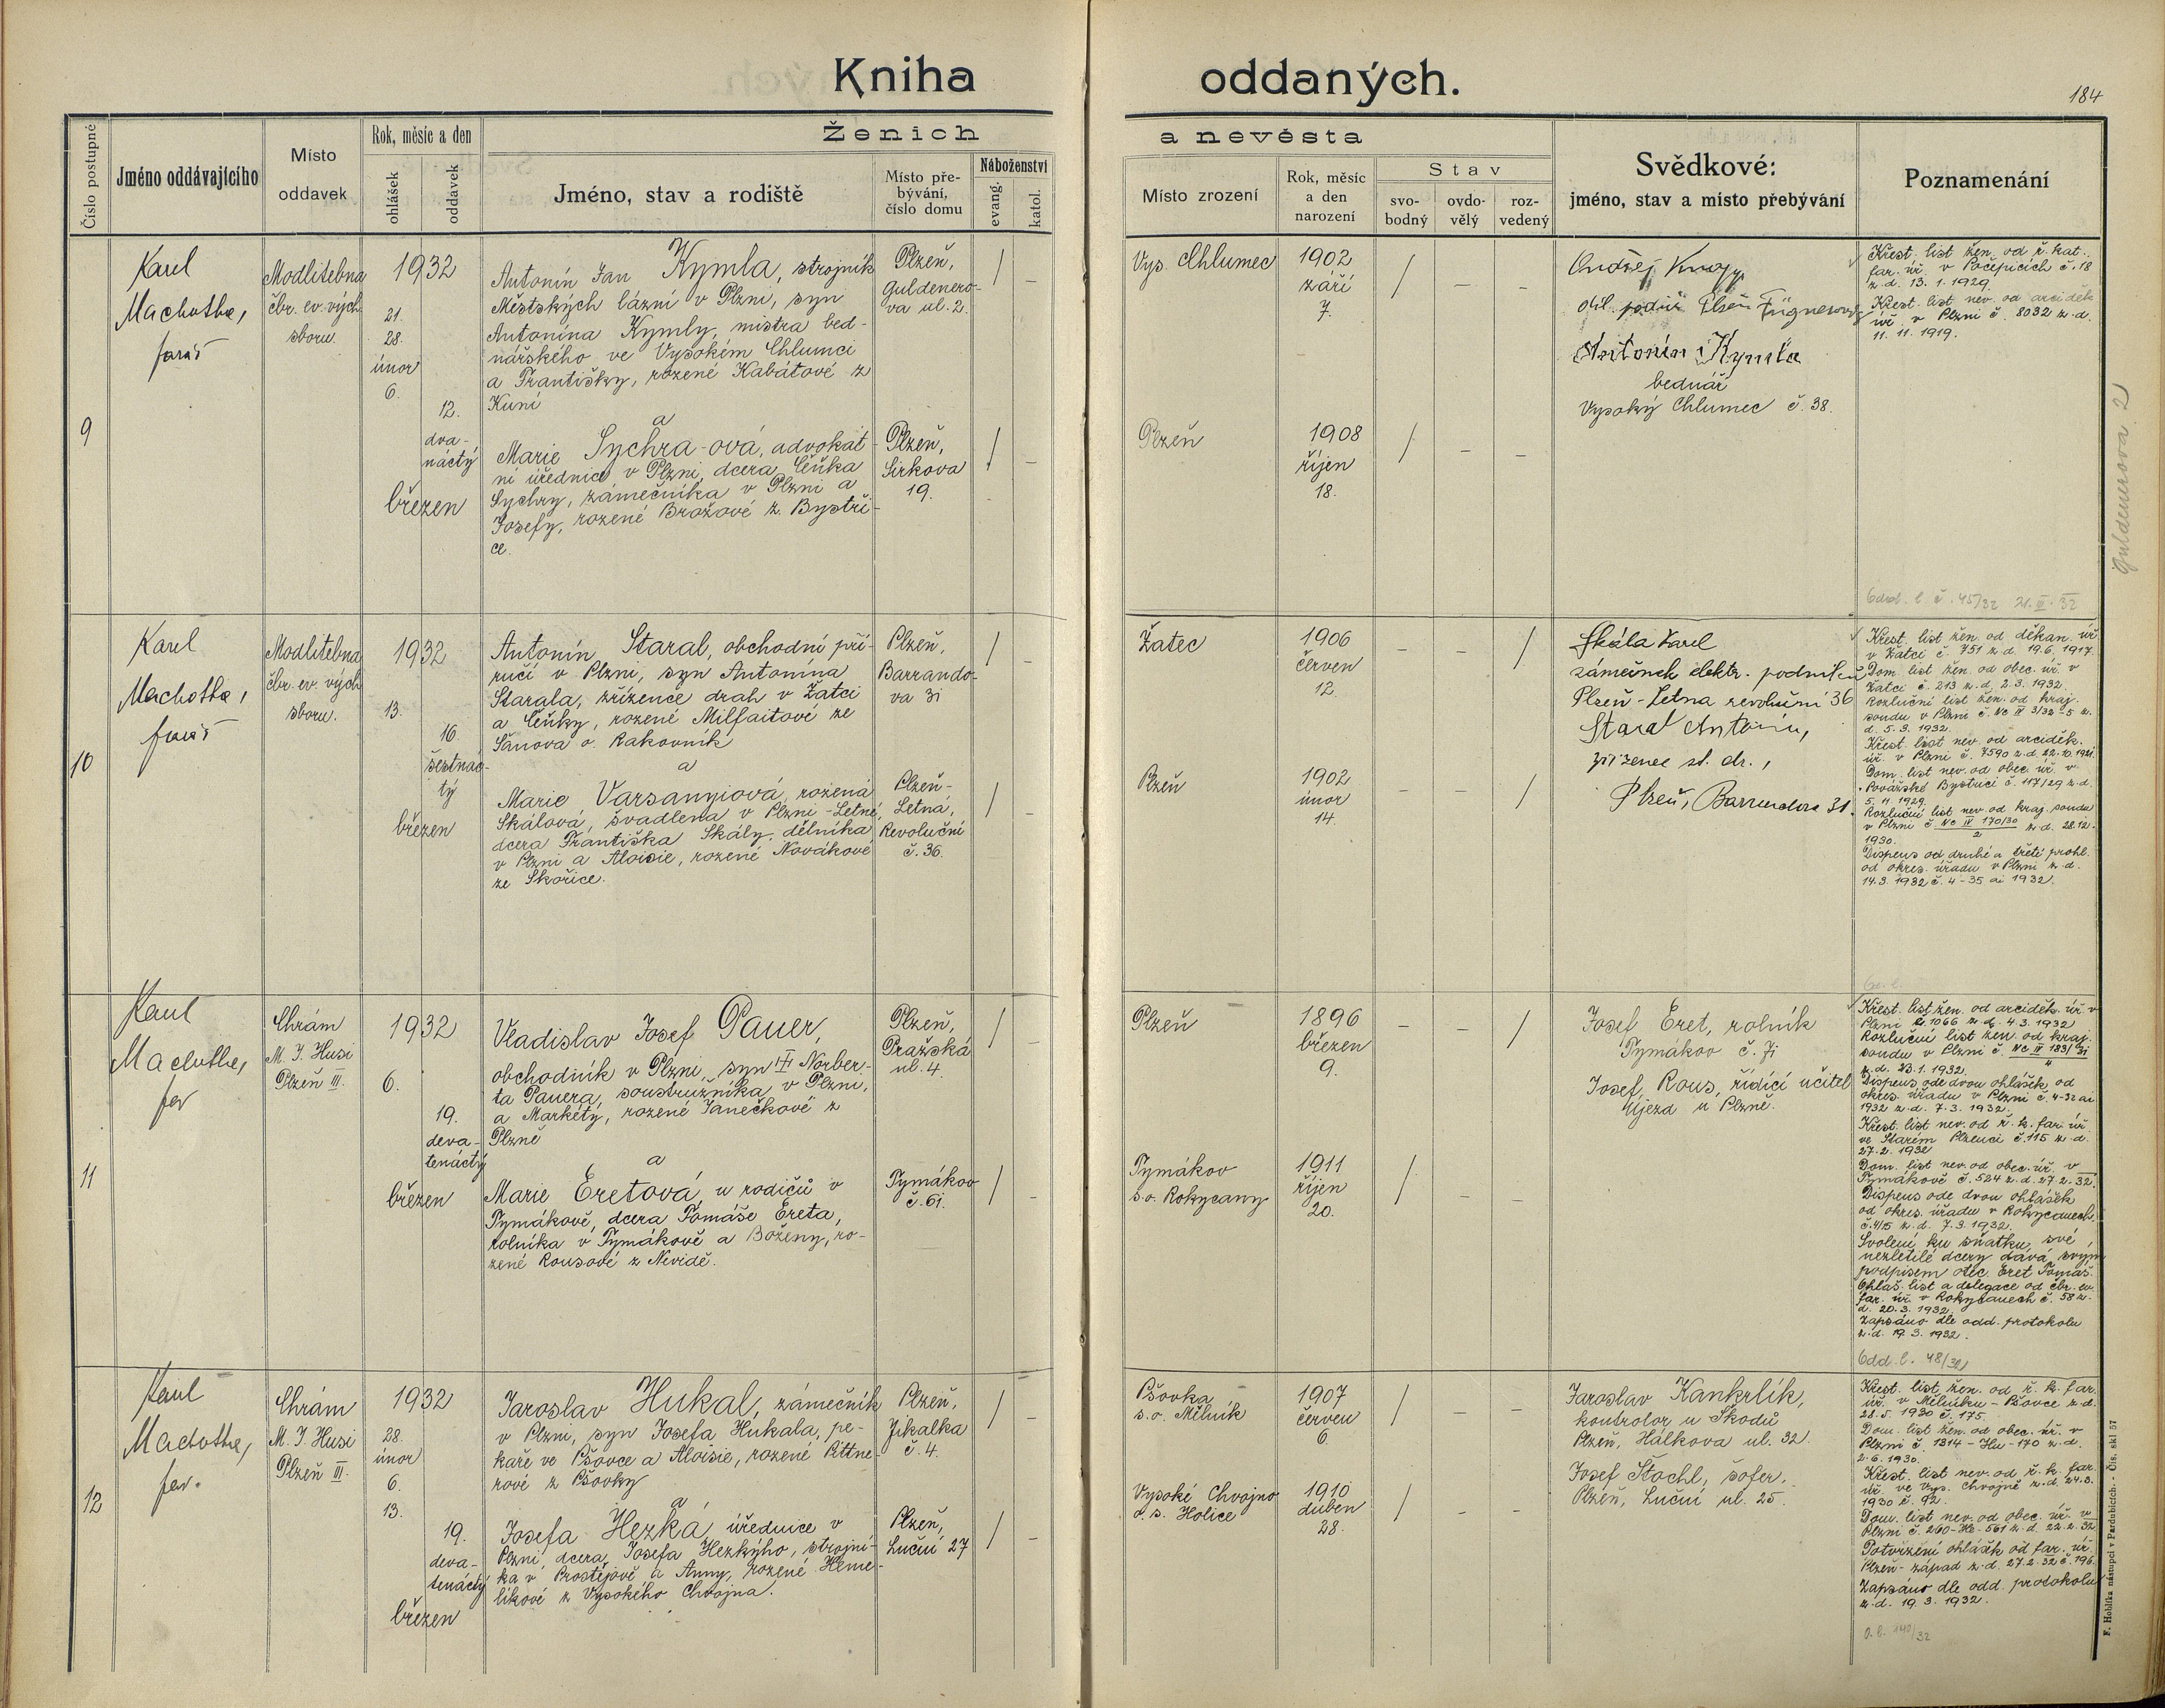 Kniha oddaných.
184
Číslo postupné
Jméno oddávajícího
Místo
oddavek
Rok, měsíc a den
ohlášek
oddavek
Ženich a nevěsta
Jméno, stav a rodiště
Místo pře-
bývání,
číslo domu
Náboženství
evang.
katol.
Místo zrození
Rok, měsíc
a den
narození
Stav
svo-
bodný
ovdo-
vělý
roz-
vedený
Svědkové:
jméno, stav a místo přebývání
Poznamenání
9
Karel
Machotka,
farář
Modlitebna
čbr. ev. vých.
sboru.
1932
21.
28.
únor
6.
12.
dva-
náctý
březen
Antonín Jan Kymla, strojník
Městských lázní v Plzni, syn
Antonína Kymly, mistra bed-
nářského ve Vysokém Chlumci
a Františky, rozené Kabátové z
Kuní
a
Marie Sychra-ová, advokát-
ní úřednice v Plzni, dcera Čeňka
Sychry, zámečníka v Plzni a
Josefy, rozené Brožové z Bystři-
ce.
Plzeň,
Guldenero-
va ul. 2.
Plzeň,
Sirkova
19.
Vys. Chlumec
1902
září
7.
Plzeň
1908
říjen
18.
Ondřej
Plzeň Fügnerova
Antonín Kymla
bednář
Vysoký Chlumec č. 38.
Křest. list žen. od ř. kat.
far. úř. v Počepicích č. 18
z. d. 13. 1. 1929.
Křest. list nev. od arciděk.
úř. v Plzni č. 8032 z. d.
11. 11. 1919.
Guldenerova 2
Odd. l. č. 45/32 21. III. 32
10
Karel
Machotka,
farář
Modlitebna
čbr. ev. vých.
sboru.
1932
13.
16.
šestnác-
tý
březen
Antonín Staral, obchodní pří-
ručí v Plzni, syn Antonína
Starala, zřízence drah v Žatci
a Čeňky, rozené Milfaitové ze
Šanova o. Rakovník
a
Marie Varsanyiová, rozená
Skálová, švadlena v Plzni-Letné,
dcera Františka Skály, dělníka
v Plzni a Aloisie, rozené Novákové
ze Skořice.
Plzeň,
Barrando-
va 31
Plzeň-
Letná,
Revoluční
č. 36.
Žatec
1906
červen
12.
Plzeň
1902
únor
14
Skála Karel
zámečník elektr. podniků
Plzeň-Letna revoluční 36
Staral Antonín,
zřízenec st. dr.,
Plzeň, Barrandova 31.
Křest. list žen. od děkan. úř.
v Žatci č. 751 z. d. 19. 6. 1917.
Dom. list žen. od obec. úř. v
Žatci č. 213 z. d. 2. 3. 1932
Rozluční list žen. od kraj.
soudu v Plzni č. Nc IV 3/32 5 z.
d. 5. 3. 1932.
Křest. list nev. od arciděk.
úř. v Plzni č. 7590 z. d. 22. 10. 1921.
Dom. list nev. od obec. úř. v
Považské Bystrici č. 117/29 z. d.
5. 11. 1929.
Rozluční list nev. od kraj. soudu
v Plzni č. Nc IV 170/30 2 z. d. 28. 12.
1930.
Dispens od druhé a třetí prohl.
od okres. úřadu v Plzni z. d.
14. 3. 1932 č. 4-35 ai 1932.
11
Karel
Machotka,
far
Chrám
M. J. Husi
Plzeň III.
1932
6.
19.
deva-
tenáctý
březen
Vladislav Josef Pauer,
obchodník v Plzni, syn Norber-
ta Pauera, soustružníka v Plzni,
a Markéty, rozené Janečkové z
Plzně
a
Marie Eretová, u rodičů v
Tymákově, dcera Tomáše Ereta,
rolníka v Tymákově a Boženy, ro-
zené Rousové z Nevidě.
Plzeň,
Pražská
ul. 4.
Tymákov
č. 61.
Plzeň
1896
březen
9.
Tymákov
s. o. Rokycany
1911
říjen
20.
Josef Eret, rolník
Tymákov č. 71
Josef Rous, řídící učitel
Újezd u Plzně.
Křest. list žen. od arciděk. úř. v
Plzni č. 1066 z. d. 4. 3. 1932
Rozluční list žen. od kraj.
soudu v Plzni č. Nc IV 183/31
z. d. 23. 1. 1932.
Dispens ode dvou ohlášek od
okres. úřadu v Plzni č. 4-32 ai
1932 z. d. 7. 3. 1932.
Křest. list nev. od ř. k. far. úř.
ve Starém Plzenci č. 115 z. d.
27. 2. 1932
Dom. list nev. od obec. úř. v
Tymákově č. 524 z. d. 27. 2. 32.
Dispens ode dvou ohlášek
od okres. úřadu v Rokycanech
č. 4/15 z. d. 7. 3. 1932.
Svolení ku sňatku své
nezletilé dcery dává svým
podpisem otec Eret Tomáš.
Ohláš. list a delegace od čbr. ev.
far. úř. v Rokycanech č. 58 z.
d. 20. 3. 1932.
Zapsáno dle odd. protokolu
z. d. 19. 3. 1932.
Odd. l. 48/32
12
Karel
Machotka,
far.
Chrám
M. J. Husi
Plzeň III.
1932
28.
únor
6.
13.
19.
deva-
tenáctý
březen
Jaroslav Hukal, zámečník
v Plzni, syn Josefa Hukala, pe-
kaře ve Pšovce a Aloisie, rozené Rittne-
rové z Pšovky
a
Josefa Hezká, úřednice v
Plzni, dcera Josefa Hezkýho, strojní-
ka v Prostějově a Anny, rozené Heme-
líkové z Vysokého Chvojna.
Plzeň,
Jikalka
č. 4.
Plzeň,
Luční 27
Pšovka
s. o. Mělník
1907
červen
6.
Vysoké Chvojno
o. s. Holice
1910
duben
28.
Jaroslav Kankrlík,
kontrolor u Škodů
Plzeň, Hálkova ul. 32.
Josef Štochl, šofer,
Plzeň, Luční ul. 25.
Křest. list žen. od ř. k. far.
úř. v Mělníku-Pšovce z. d.
28. 5. 1930 č. 175.
Dom. list žen. od obec. úř. v
Plzni č. 1314-Hu-170 z. d.
2. 6. 1930.
Křest. list nev. od ř. k. far.
úř. ve Vys. Chvojně z. d. 24. 3.
1930 č. 92.
Dom. list nev. od obec. úř. v
Plzni č. 260-He-561 z. d. 22. 2. 32
Potvrzení ohlášek od far. úř.
Plzeň-západ z. d. 27. 2. 32 č. 196.
Zapsáno dle odd. protokolu
z. d. 19. 3. 1932.
o. l. 140/32
F. Hoblíka nástupci v Pardubicích. - Čís. skl 57